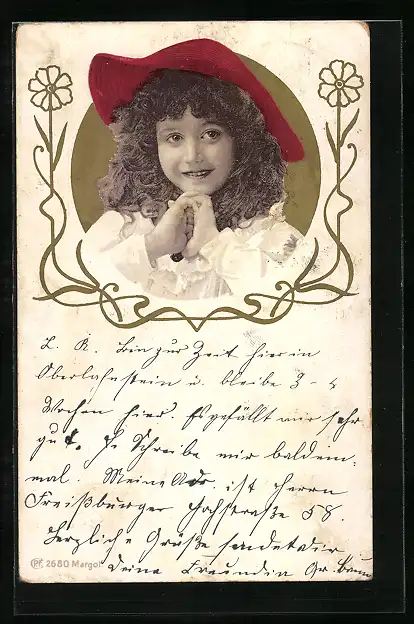 L. K. bin zur Zeit hier in
Oberlahnstein u. bleibe 3 - 4
Wochen hier. Es gefällt mir sehr
gut. Schreibe mir bald ein-
mal. Meine Adr. ist Herrn
Freißburger Hochstraße 58.
Herzliche Grüße sendet dir
Deine Freundin Gr.
PF. 2680 Margot